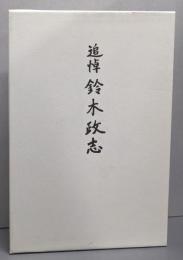 追悼鈴木政志